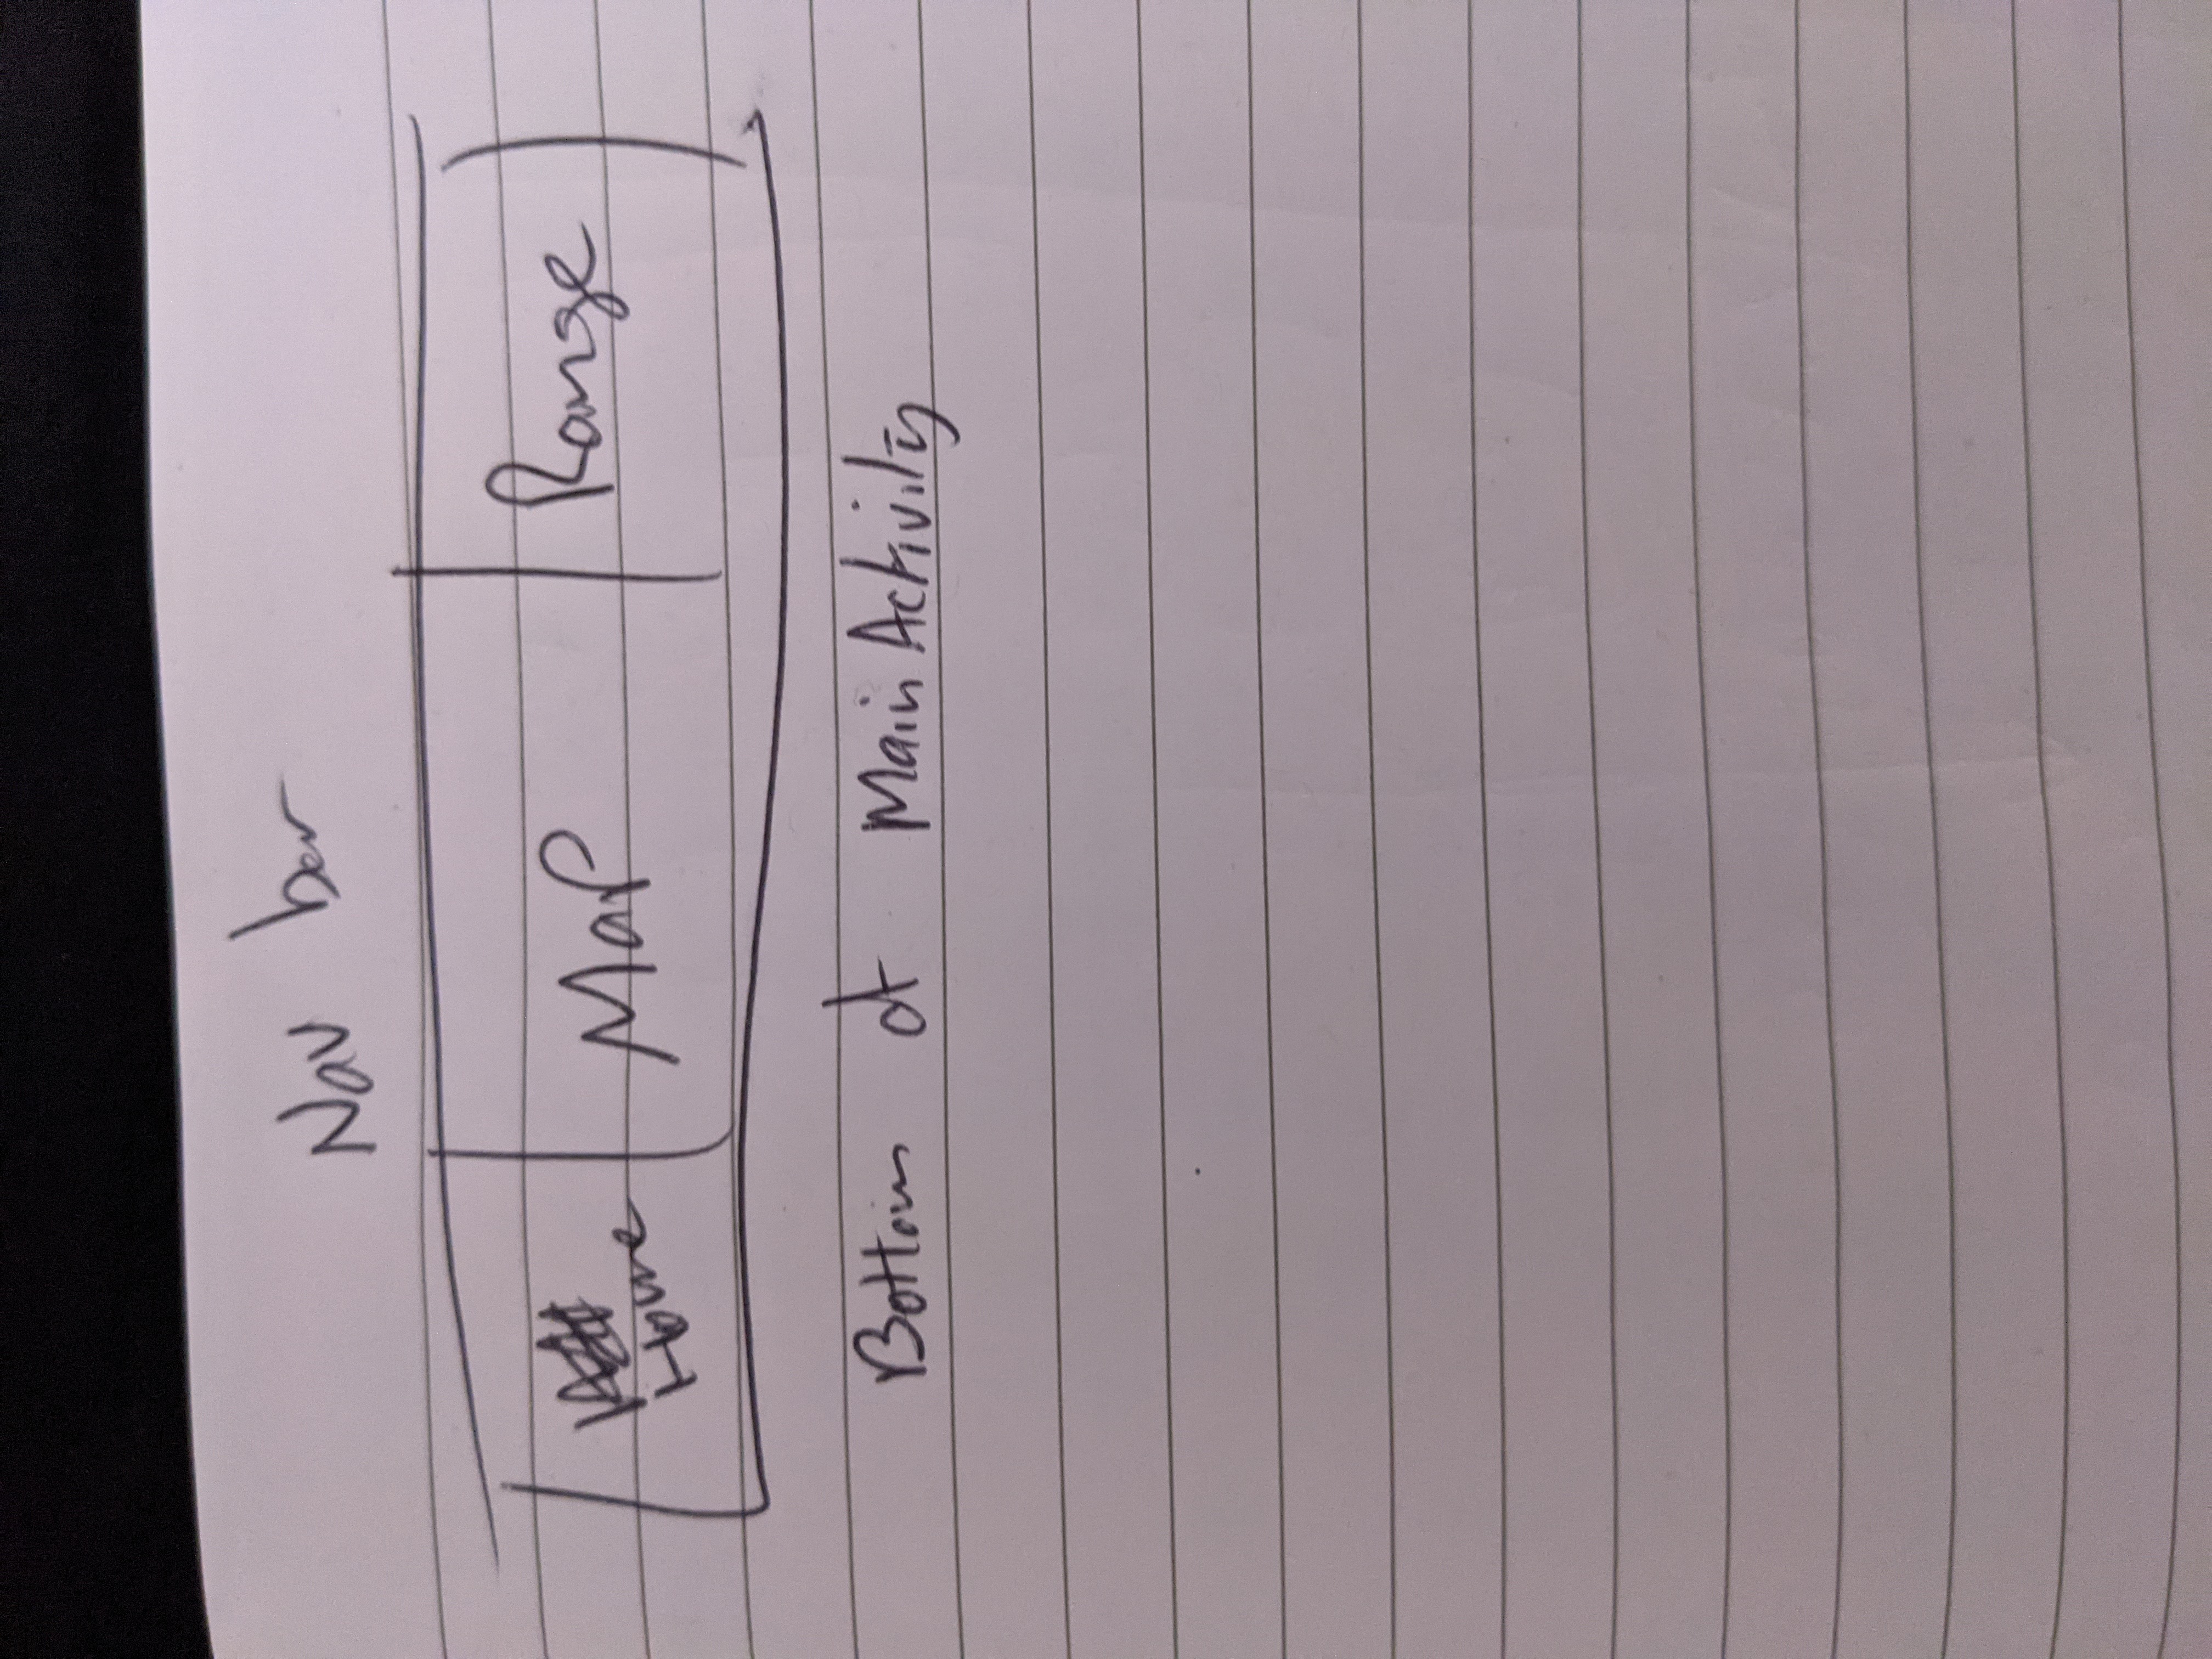 Nav bar
Home Map Range
Bottom of Main Activity